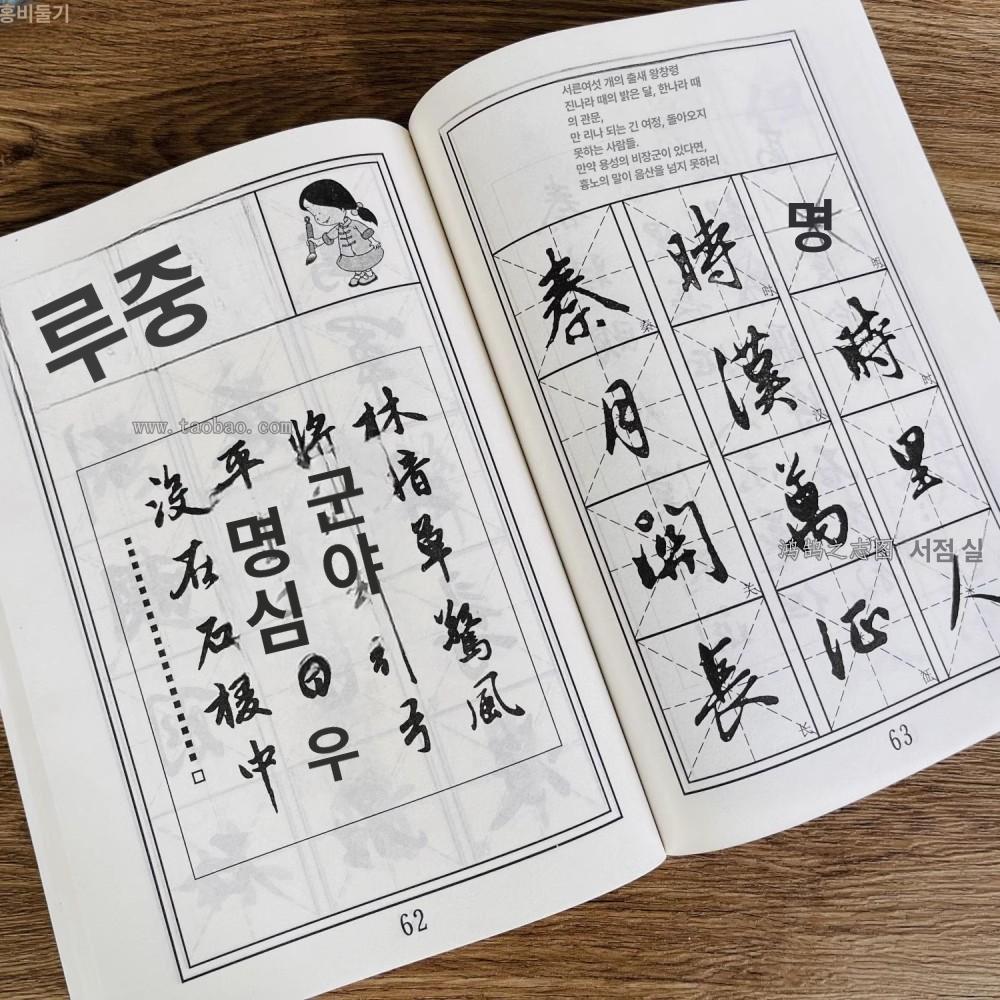 홍비둘기
루중
www.taobao.com
林暗草驚風
將군야引弓
平명심우
没在石棱中
62
서른여섯 개의 출새 왕창령
진나라 때의 밝은 달, 한나라 때
의 관문,
만 리나 되는 긴 여정, 돌아오지
못하는 사람들.
만약 용성의 비장군이 있다면,
흉노의 말이 음산을 넘지 못하리
秦時명
月漢時
關萬里
鸿鹄之志图 서점 실
長征人
63